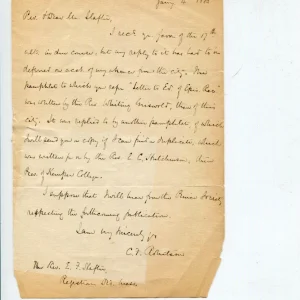 Rev. & Dear Mr. Slafter,
I rec'd yr. favor of the 17th
in due course, but my reply to it has had to be
deferred on acct. of my absence from this city. The
pamphlet to which you refer "Letter to Ed. of
was written by the Rev. Whiting Griswold, then of this
city. It was replied to by another pamphlet, of which
I will send you a copy if I can find a duplicate, which
was written by the Rev. E. C. Hutchinson, then
Pres. of Kemper College.
I suppose that I will hear from the Prince Society
respecting the forthcoming publication.
I am very sincerely yrs
C. F. Robertson
The Rev. E. F. Slafter
Registrar Dio. Mass